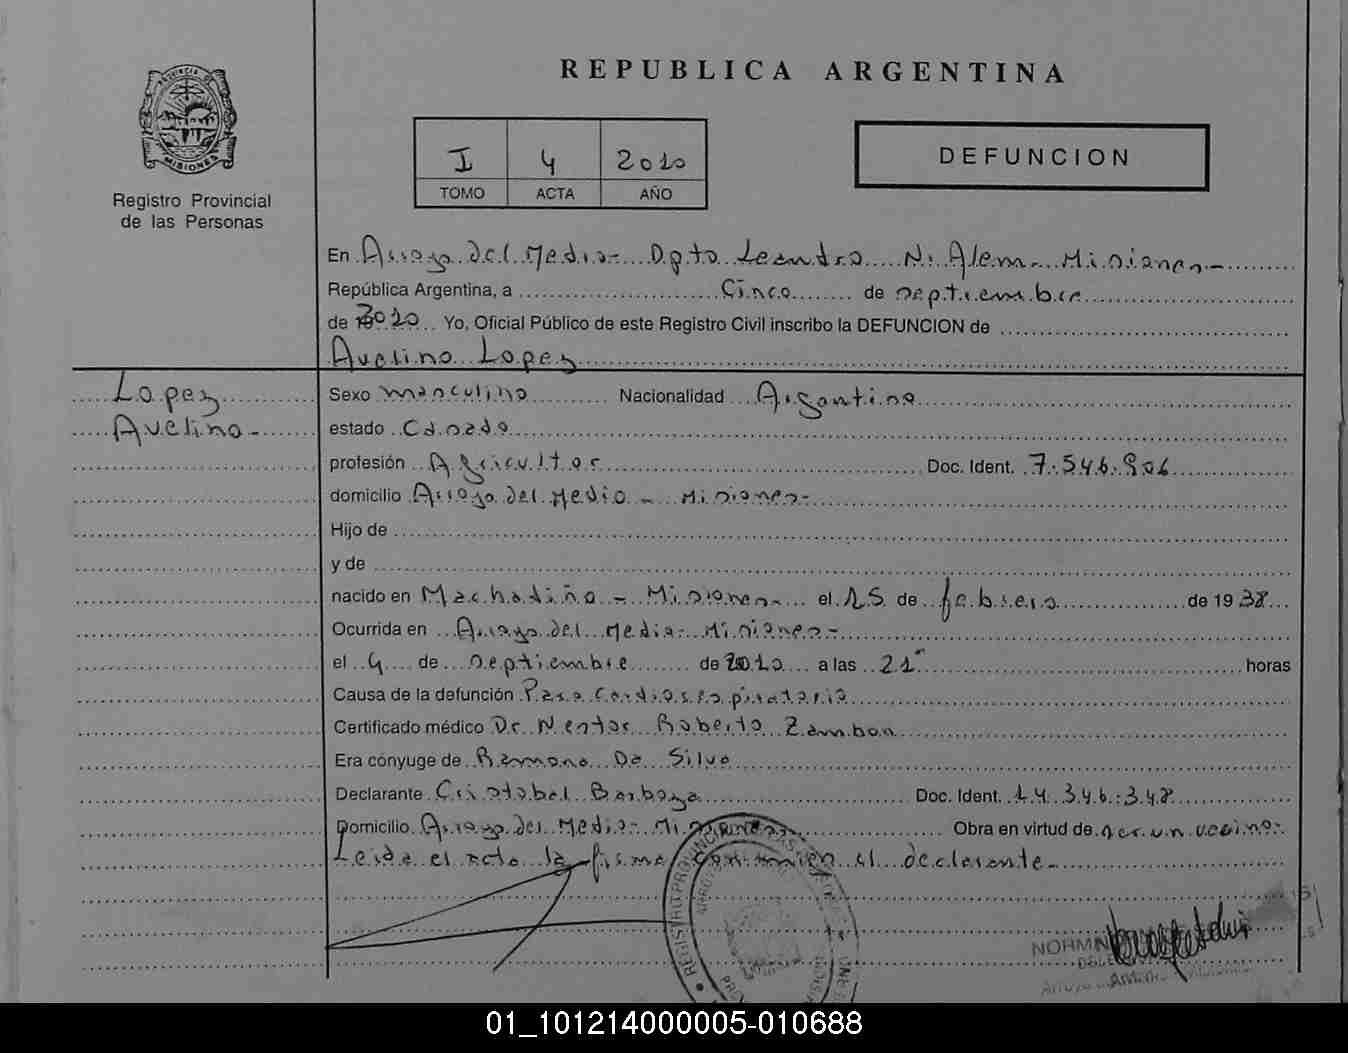 PROVINCIA DE
MISIONES
Registro Provincial
de las Personas
REPUBLICA ARGENTINA
I 4 2010
TOMO ACTA AÑO
DEFUNCION
En Arroyo del Medio - Dpto Leandro N. Alem - Misiones -
República Argentina, a Cinco de septiembre
de 2010 Yo, Oficial Público de este Registro Civil inscribo la DEFUNCION de
Avelino Lopez
Lopez
Avelino -
Sexo masculino Nacionalidad Argentino
estado Casado
profesión Agricultor Doc. Ident. 7.546.906
domicilio Arroyo del Medio - Misiones -
Hijo de
y de
nacido en Machadiño - Misiones - el 15 de febrero de 1938
Ocurrida en Arroyo del Medio - Misiones -
el 4 de septiembre de 2010 a las 21 horas
Causa de la defunción Paro Cardiorespiratorio
Certificado médico Dr. Nestor Roberto Zambon
Era cónyuge de Ramona Da Silva
Declarante Cristobal Barboza Doc. Ident. 14.346.348
Domicilio Arroyo del Medio - Misiones - Obra en virtud de ser un vecino -
Leida el acta la firma conmigo el declarante -
REGISTRO PROVINCIAL DE LAS PERSONAS
01_101214000005-010688